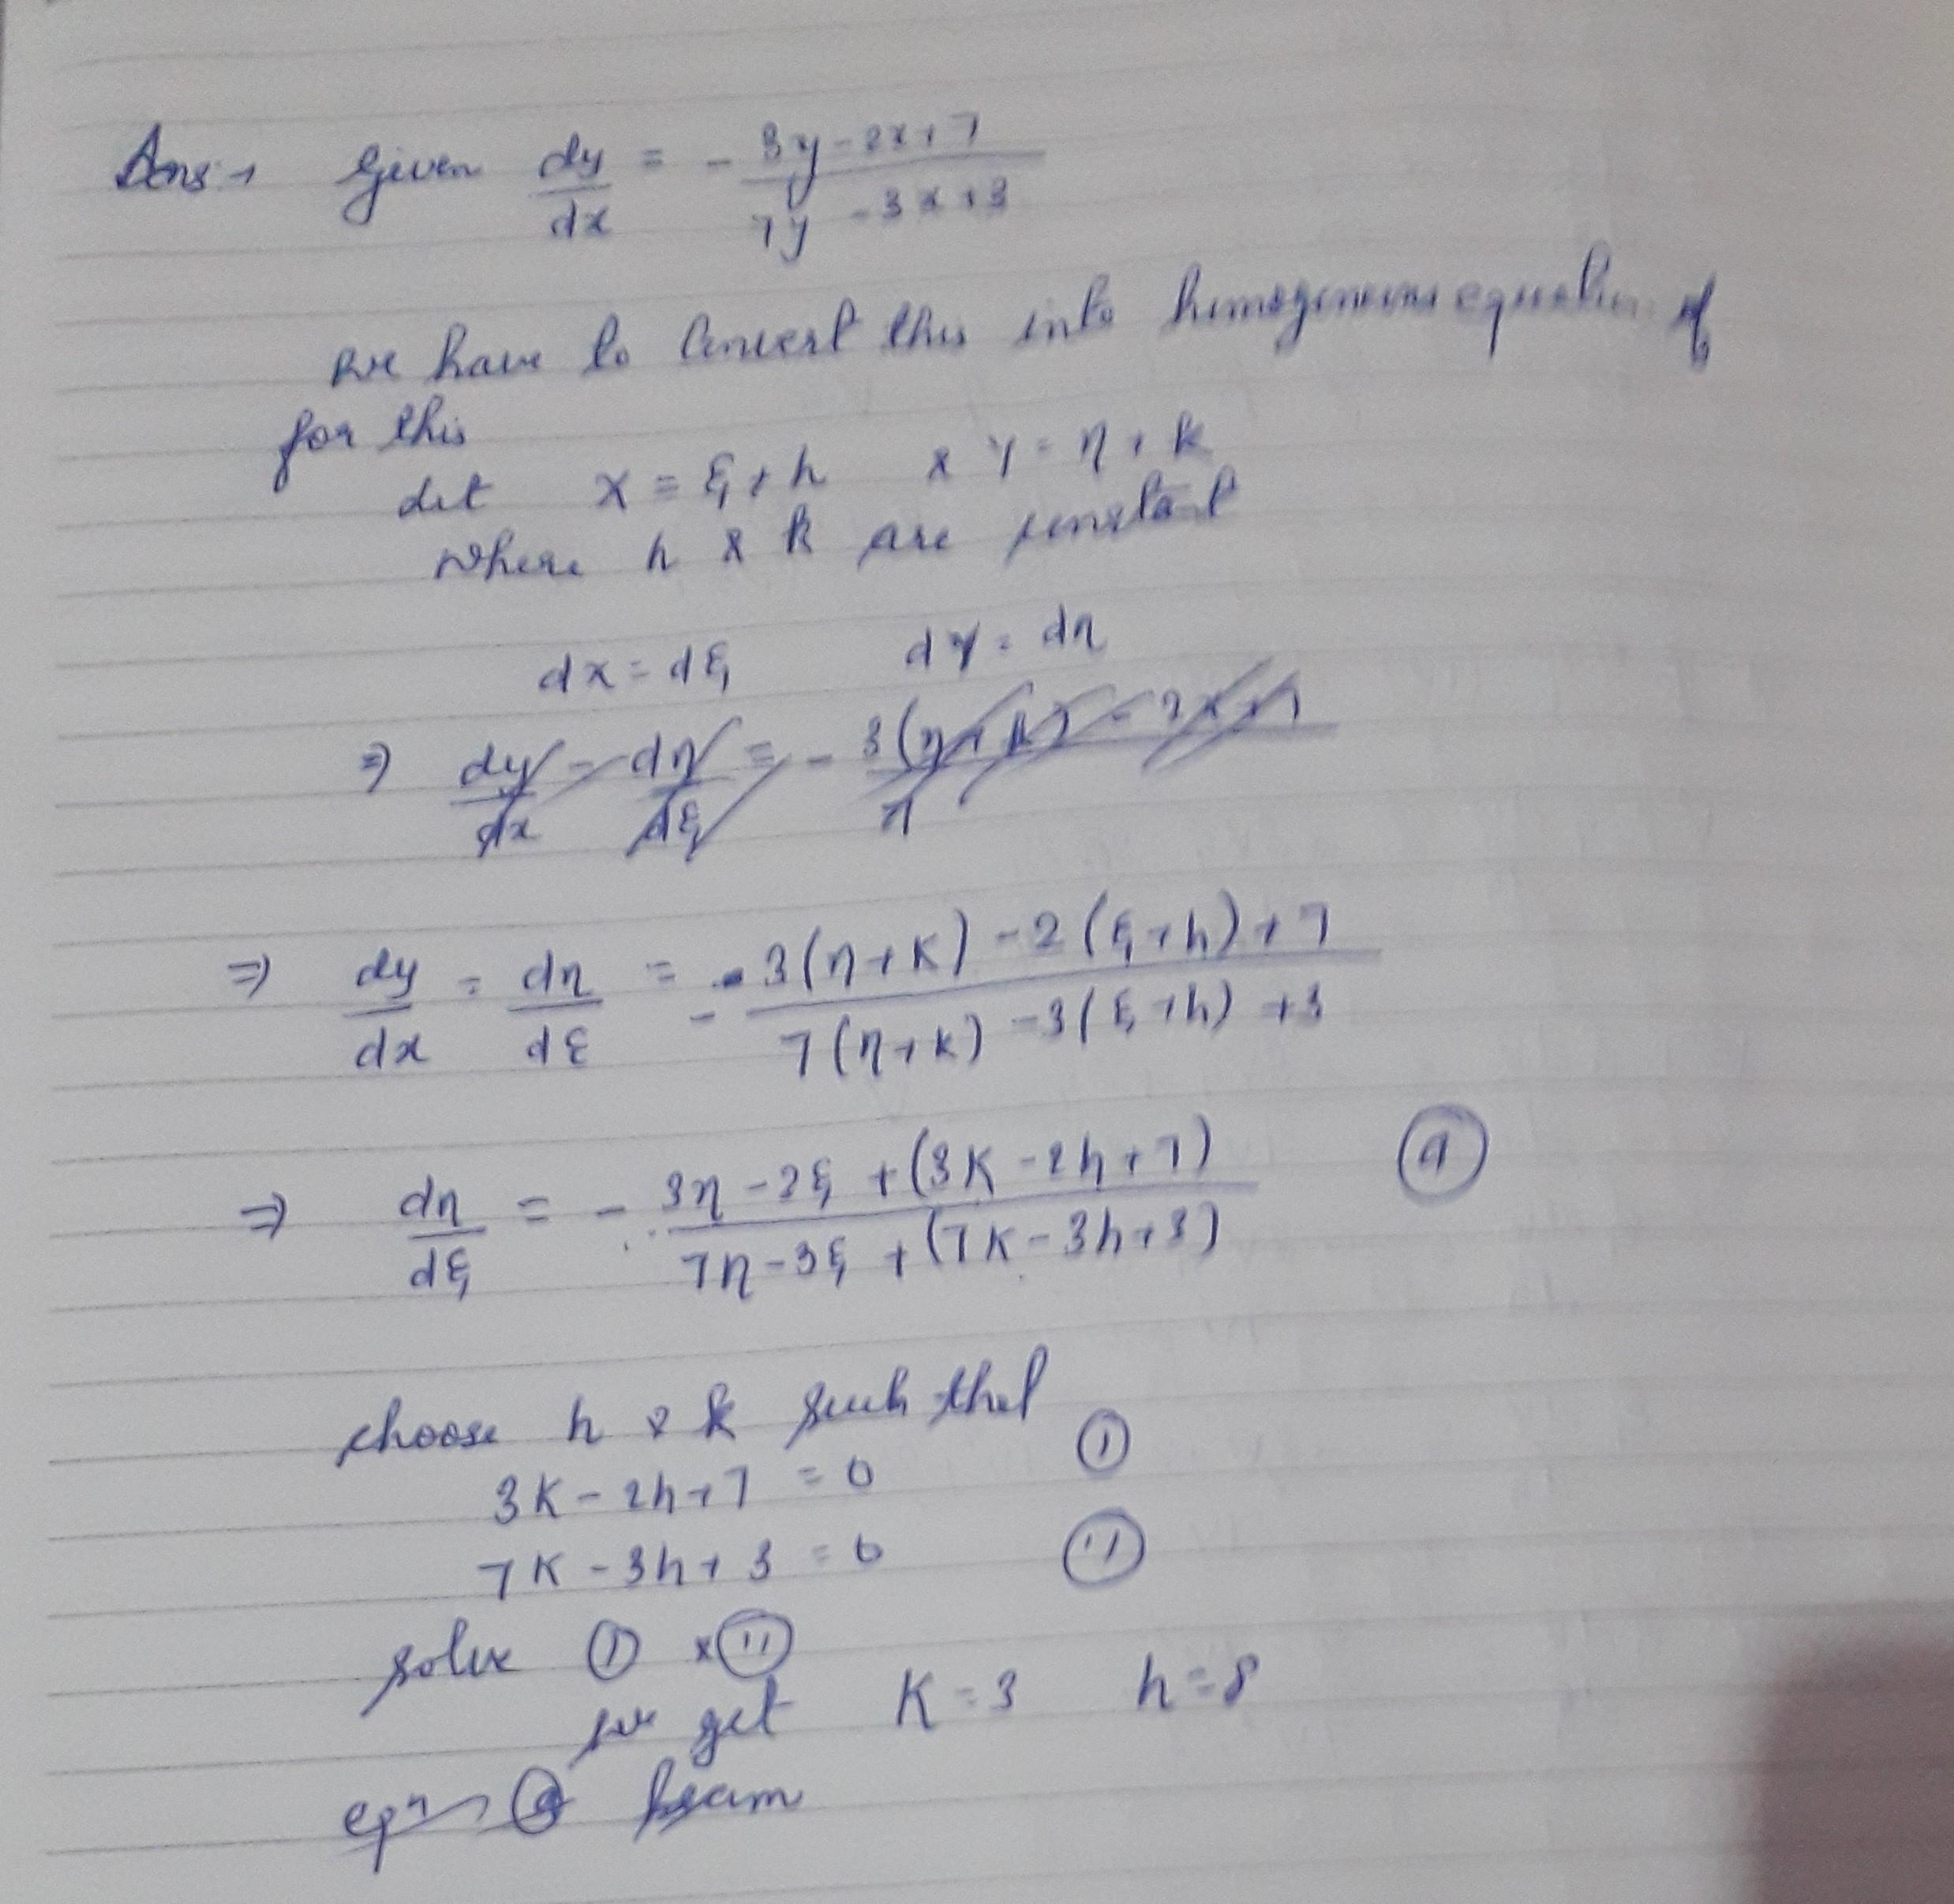 Ans → Given dy/dx = - (3y - 2x + 7)/(7y - 3x + 3)
we have to convert this into homogeneous equation of
for this
Let x = ξ + h & y = η + k
where h & k are constant
dx = dξ dy = dη
⇒ dy/dx = dη/dξ = - (3(η + k) - 2x + 7)/7
⇒ dy/dx = dη/dξ = - (3(η + k) - 2(ξ + h) + 7)/(7(η + k) - 3(ξ + h) + 3)
⇒ dη/dξ = - (3η - 2ξ + (3k - 2h + 7))/(7η - 3ξ + (7k - 3h + 3)) (a)
choose h & k such that
3k - 2h + 7 = 0 (i)
7k - 3h + 3 = 0 (ii)
solve (i) & (ii)
we get k = 3 h = 8
eqn (a)